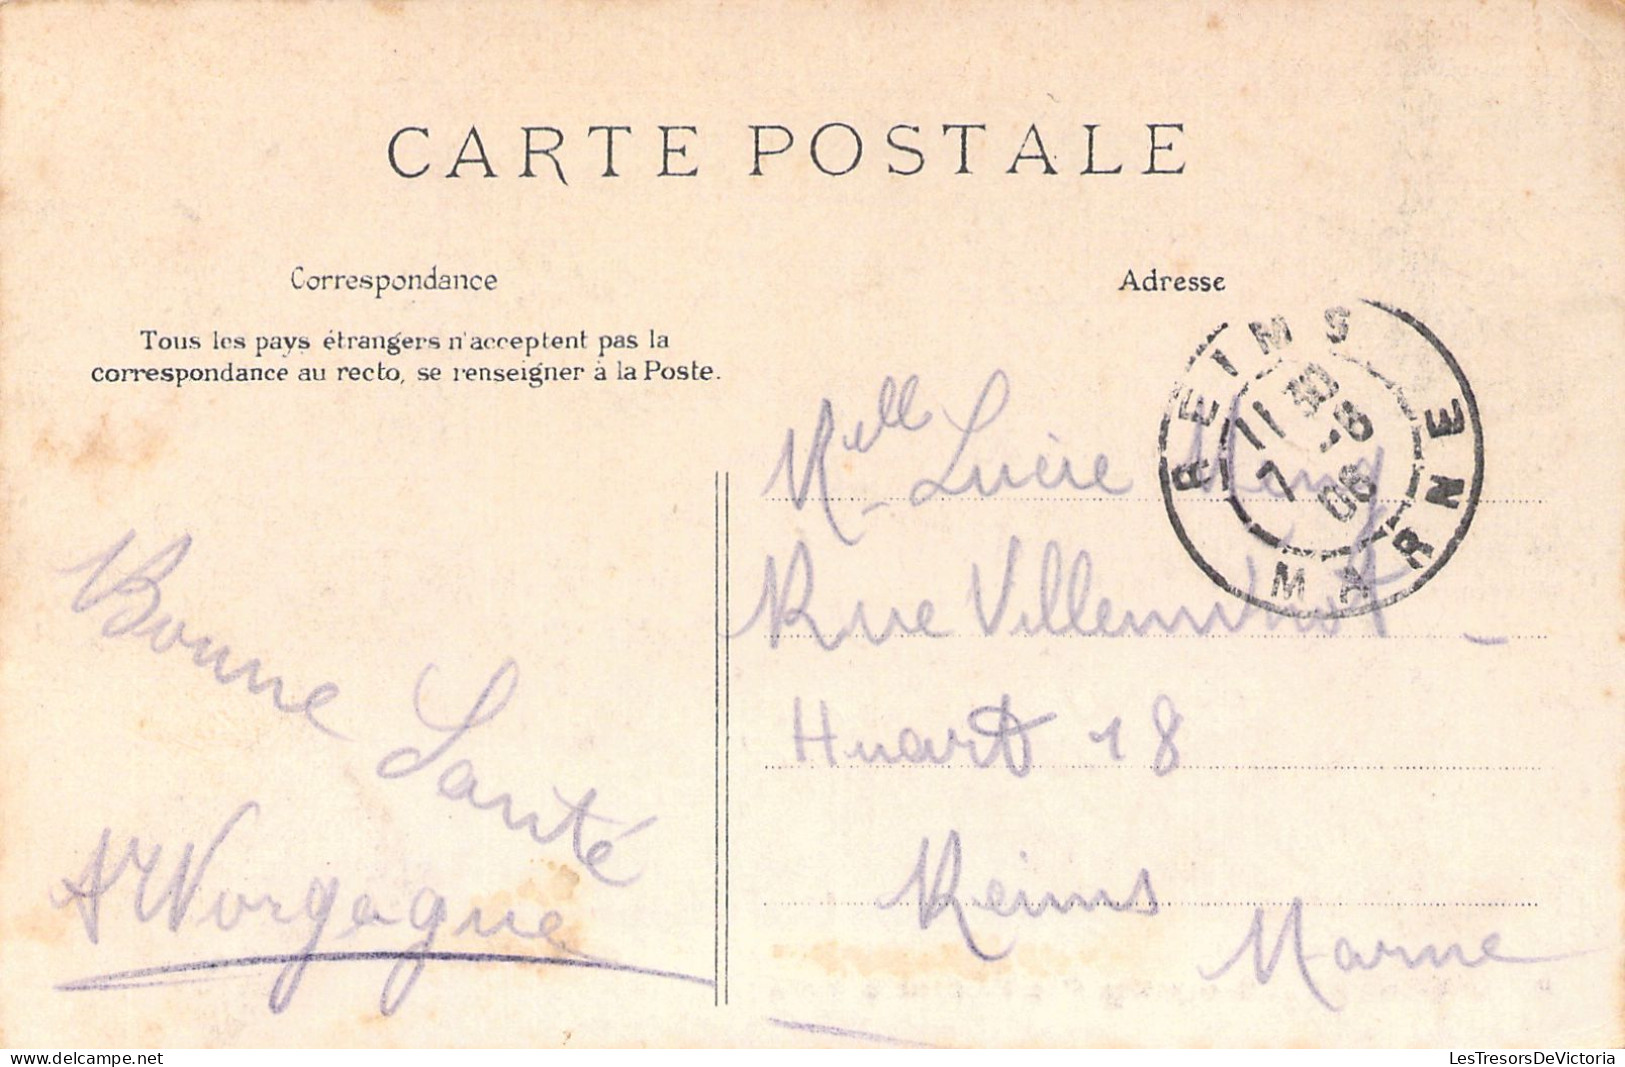 CARTE POSTALE
Correspondance
Tous les pays étrangers n'acceptent pas la
correspondance au recto, se renseigner à la Poste.
Bonne Santé
Adresse
REIMS
11 30
7 -8
06
MARNE
Mell Lucie
Rue Villeminot -
Huart 18
Reims
Marne
LesTresorsDeVictoria